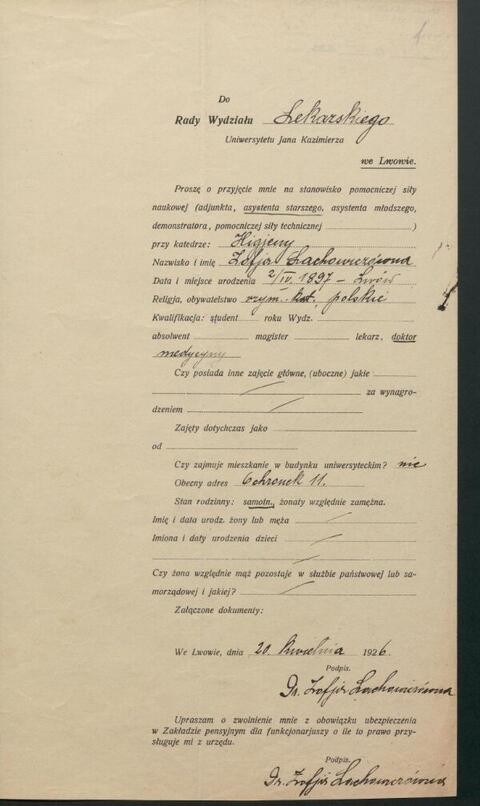 Do
Rady Wydziału Lekarskiego
Uniwersytetu Jana Kazimierza
we Lwowie.
Proszę o przyjęcie mnie na stanowisko pomocniczej siły
naukowej (adjunkta, asystenta starszego, asystenta młodszego,
demonstratora, pomocniczej siły technicznej )
przy katedrze: Higjeny
Nazwisko i imię Zofja Lachowiczówna
Data i miejsce urodzenia 2/IV. 1897 – Lwów
Religja, obywatelstwo rzym. kat. polskie
Kwalifikacja: student roku Wydz.
absolwent magister lekarz, doktor
medycyny
Czy posiada inne zajęcie główne, (uboczne) jakie
za wynagro-
dzeniem
Zajęty dotychczas jako
od
Czy zajmuje mieszkanie w budynku uniwersyteckim? nie
Obecny adres Ochronek 11.
Stan rodzinny: samotn., żonaty względnie zamężna.
Imię i data urodz. żony lub męża
Imiona i daty urodzenia dzieci
Czy żona względnie mąż pozostaje w służbie państwowej lub sa-
morządowej i jakiej?
Załączone dokumenty:
We Lwowie, dnia 20. kwietnia 1926.
Podpis.
Dr. Zofja Lachowiczówna
Upraszam o zwolnienie mnie z obowiązku ubezpieczenia
w Zakładzie pensyjnym dla funkcjonarjuszy o ile to prawo przy-
sługuje mi z urzędu.
Podpis.
Dr. Zofja Lachowiczówna